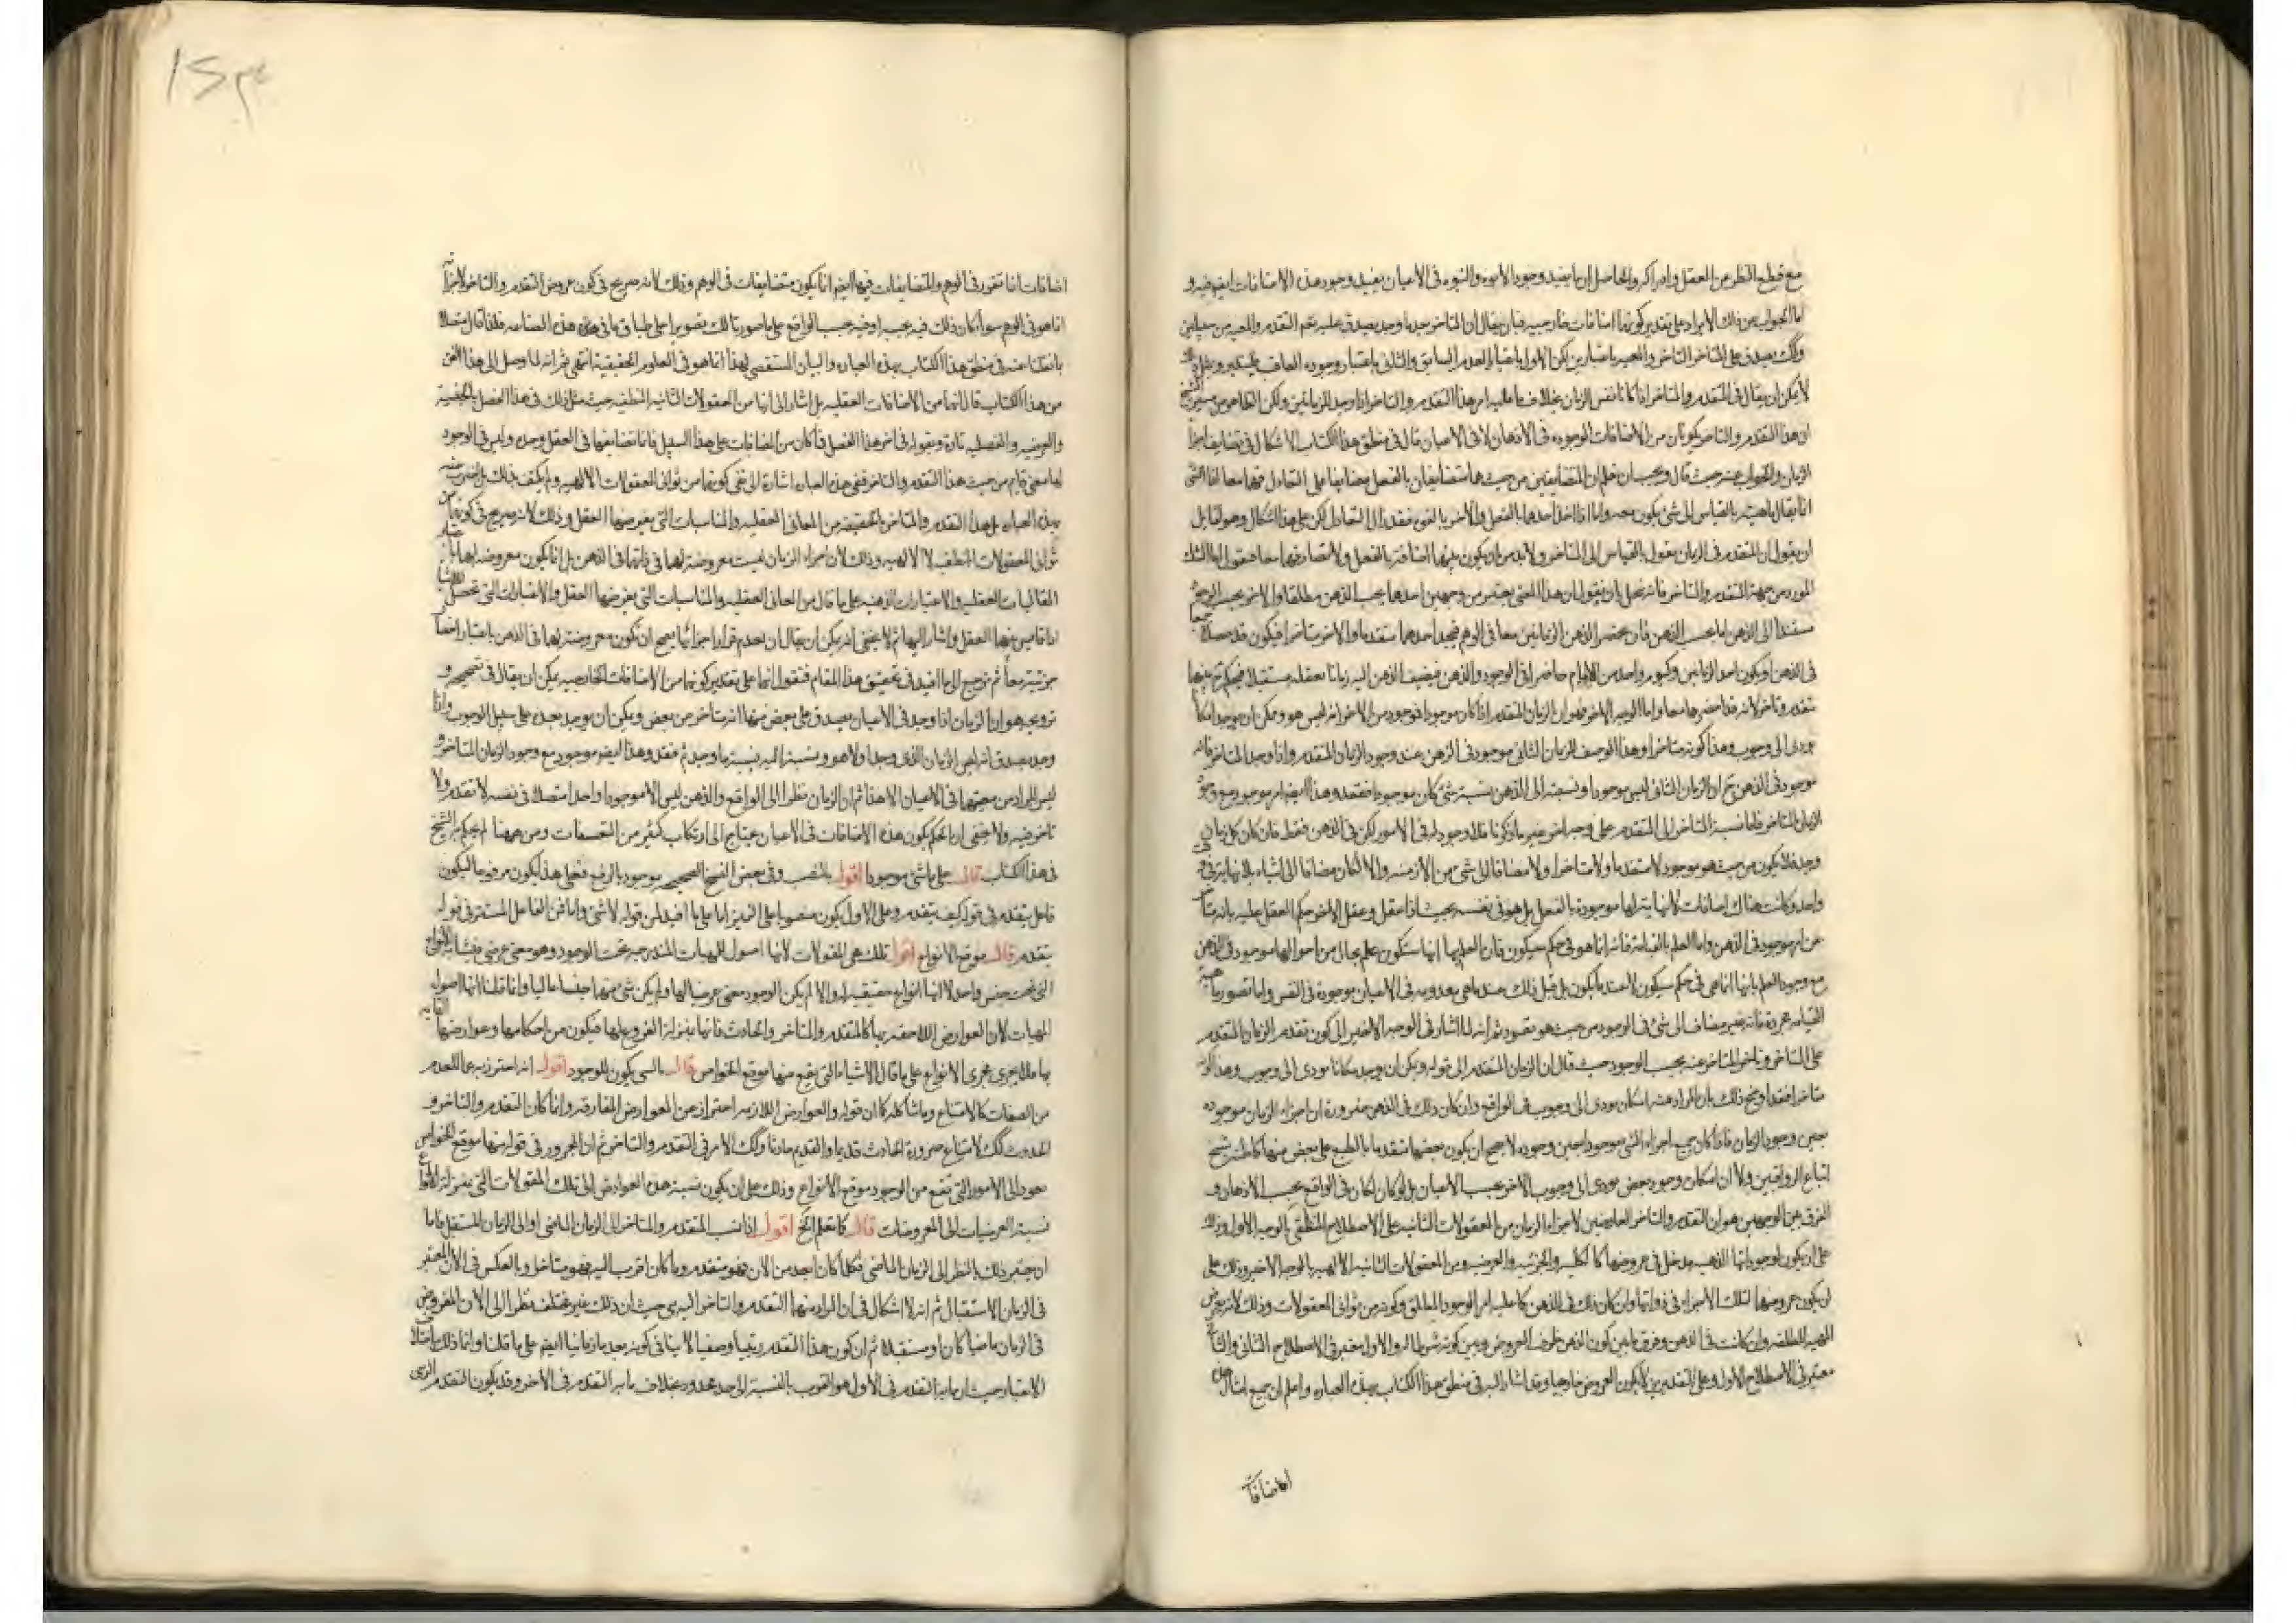 مع قطع النظر عن العقل وادراكه والحاصل ان ما يفيد وجود الابوة والبنوة فى الاعيان يفيد وجود هذه الاضافات ايضا فيه و
اما الجواب عن ذلك الايراد على تقدير كونها اضافات خارجيه فبان يقال ان المتاخر حد ما وجد يصدق عليه نعم التقدم والمعيه من
وكك يصدق على المتاخر التاخر والمعيه باعتبارين لكن الاول باعتبار العدم السابق والثانى باعتبار وجوده
لا يمكن ان يقال فى المتقدم والمتاخر اذا كانا نفس الزمان بخلاف ما عليه امر هذا التقدم والتاخر اذا وجد للزمانين ولكن الظاهر من
ان هذا التقدم والتاخر يكونان من الاضافات الموجوده فى الاذهان لا فى الاعيان قال فى منطق هذا الكتاب الاشكال فى تضايف اجزا
الزمان والجواب عنه حيث قال ويجب ان يعلم ان المتضايفين من حيث هما متضايفان بالفعل متضايفا على التعادل فهما معا اذ الشى
انما يقال ماهيته بالقياس الى شئ يكون معه واما اذا اخذ احدهما بالفعل والاخر بالقوه فقد زال التعادل لكن على هذا اشكال وهو لقائل
ان يقول ان المتقدم فى الزمان مقول بالقياس الى المتاخر ولا بد من ان يكون بينهما اضافة بالفعل ولا تصادفهما معا فنقول اما الشك
المورد من جهة التقدم والتاخر فانه يحل بان نقول ان هذا المعنى يعتبر من وجهين احدهما بحسب الذهن مطلقا والاخر بحسب الوجود
مستندا الى الذهن اما بحسب الذهن فان يحضر الذهن الزمانين معا فى الوهم فيجد احدهما متقدما والاخر متاخرا فيكون قد حصلا جميعا
فى الذهن او يكون احد الزمانين وكيوم واحد من الايام حاضرا فى الوجود والذهن فيضيف الذهن اليه زمانا يعقله مستقبلا فيحكم
تقدم وتاخر لانه قد احضرهما معا واما الوجه الاخر فهو ان الزمان المتقدم اذا كان موجودا فموجود من الاخر انه ليس هو وممكن ان يوجد امكانا
يودى الى وجوب وهذا كونه متاخرا وهذا الوصف للزمان الثانى موجود فى الذهن عند وجود الزمان المتقدم واذا وجد المتاخر فانه
موجود فى الذهن ح ان الزمان الثانى ليس موجودا ونسبته الى الذهن نسبة شئ كان موجودا ففقد وهذا ايضا امر موجود مع وجود
الزمان المتاخر فاما نسبة المتاخر الى المتقدم على وجه اخر غير ما ذكرنا فلا وجود له فى الامور لكن فى الذهن فقط فان كان كل زمان
وجد فلا يكون من حيث هو موجود لا متقدما ولا متاخرا ولا مضافا الى شئ من الازمنه والا لكان مضافا الى اشياء بلا نهايه فى
واحد وكانت هناك اضافات لا نهاية لها موجودة بالفعل بل هو فى نفسه بحيث اذا عقل وعقل الاخر حكم العقل عليه بانه متأ
عن امر موجود فى الذهن واما العلم بالقيامة فانه انما هو فى حكم سيكون فان العلم بها انها ستكون علم بحال من احوالها موجود فى الذهن
مع وجود العلم بانها انما هى فى حكم سيكون لا عند ما يكون بل قبل ذلك عند ما هى معدومه فى الاعيان موجودة فى النفس واما تصور ماهية
القيامه مجردة فانه غير مضاف الى شئ فى الوجود من حيث هو تصور ثم انه لما اشار فى الوجه الاخير الى كون تقدم الزمان المتقدم
على المتاخر وتاخر المتاخر عنه بحسب الوجود حيث قال ان الزمان المتقدم الى قوله ويمكن ان يوجد امكانا يودى الى وجوب وهذا كونه
متاخرا فقد اوضح ذلك بان المراد منه امكان يودى الى وجوب فى الواقع وان كان ذلك فى الذهن ضرورة ان اجزاء الزمان موجوده
بعين وجود الزمان فاذا كان جميع اجزاء الشئ موجودا بعين وجوده لا يصح ان يكون بعضها متقدما بالطبع على بعض منها كما ظنه شيخ
اتباع الرواقيين ولا ان امكان وجود بعض يودى الى وجوب الاخر بحسب الاعيان بل لو كان لكان فى الواقع بحسب الاذهان و
الفرق بين الوجهين هو ان التقدم والتاخر العارضين لاجزاء الزمان من المعقولات الثانيه على الاصطلاح المنطقى بالوجه الاول وذلك
على ان يكون لوجوداتها الذهنيه مدخل فى عروضها كالكليه والجزئيه والعرضيه ومن المعقولات الثانيه الالهيه بالوجه الاخير وذلك على
ان يكون عروضهما لتلك الاجزاء فى ذواتها وان كان ذلك فى الذهن كما عليه امر الوجود المطلق وكونه من ثوانى المعقولات وذلك لانه يعرض
المهيه المطلقه وان كانت فى الذهن وفرق ما بين كون الذهن ظرف العروض وبين كونه شرطا له والاول معتبر فى الاصطلاح الثانى والثانى
معتبر فى الاصطلاح الاول وعلى التقديرين لا يكون العروض خارجيا وقد اشار اليه فى منطق هذا الكتاب بهذه العباره واعلم ان جميع امثال هذه
الاضافات
اضافات انما تتقرر فى الوهم والمتضايفات فيها ايضا انما يكون متضايفات فى الوهم وذلك لانه صريح فى كون عروض التقدم والتاخر لاجزائه
انما هو فى الوهم سواء كان ذلك فيه بحسبه او فيه بحسب الواقع على ما صورنا لك تصويرا على طباق ما فى هذه الصناعه فلذا قال متصلا
بما نقلنا عنه فى منطق هذا الكتاب بهذه العباره والبيان المستقصى لهذا انما هو فى العلوم الحقيقية انتهى ثم انه لما وصل الى هذا الفن
من هذا الكتاب قال انهما من الاضافات العقليه بل اشار الى انها من المعقولات الثانيه المنطقيه حيث مثل ذلك فى هذا الفصل بالجنسية
والنوعيه والفصليه تارة وبقوله فى اخر هذا الفصل فما كان من المضافات على هذا السبيل فانما تضايفها فى العقل وحده وليس فى الوجود
لها معنى قايم من حيث هذا التقدم والتاخر ففى هذه العباره اشارة الى نفى كونهما من ثوانى المعقولات الالهيه ولم يكتف بذلك بل
بهذه العباره بل هذا التقدم والتاخر بالحقيقة من المعانى العقليه والمناسبات التى يفرضها العقل وذلك لانه صريح فى كونهما من
ثوانى المعقولات المنطقيه لا الالهيه وذلك لان اجزاء الزمان ليست معروضة لها فى ذاتها فى الذهن بل انما يكون معروضه لها
المقايسات العقليه والاعتبارات الذهنيه على ما قال من المعانى العقليه والمناسبات التى يفرضها العقل والاعتبارات التى تحصل للاشيا
اذا قايس بينها العقل واشار اليها ثم لا يخفى انه يمكن ان يقال ان بعدم قرار اجزائها يصح ان تكون معروضة لها فى الذهن باعتبار
جزئيته معا ثم نرجع الى ما افيد فى تحقيق هذا المقام فنقول انها على تقدير كونها من الاضافات الخارجيه يمكن ان يقال فى تصحيحه و
ترويجه هو ان الزمان اذا وجد فى الاعيان يصدق على بعض منها انه متاخر عن بعض ويمكن ان يوجد بعده على سبيل الوجوب واذا
وجد يصدق انه ليس الزمان الذى وجد اولا هو ونسبته اليه نسبة ما وجد ثم فقد وهذا ايضا موجود مع وجود الزمان المتاخر و
ليس المراد من معيتها فى الاعيان الا هذا ثم ان الزمان نظرا الى الواقع والذهن ليس الا موجودا واحدا متصلا فى نفسه لا تقدم ولا
تاخر فيه ولا يخفى ان الحكم بكون هذه الاضافات فى الاعيان يحتاج الى ارتكاب كثير من التعسفات ومن ههنا لم يحكم به الشيخ
فى هذا الكتاب قال على ما شئ موجودا اقول بالنصب وفى بعض النسخ الصحيحه موجود بالرفع فعلى هذا يكون مرفوعا ليكون
فاعل يتقدم فى قوله كيف يتقدم وعلى الاول يكون منصوبا على التميز اما على ما افيد من قوله لا شئ واما من الفاعل المستتر فى قوله
يتقدم قال موقع الانواع اقول تلك هى المقولات لانها اصول للمهيات المندرجه تحت الوجود وهو معنى عرضى فيشابه الانواع
التى تحت جنس واحد لا انها انواع حقيقيه له والا لم يكن الوجود معنى عرضيا لها ولم يكن شئ منها جنسا عاليا وانما قلنا انها اصول
المهيات لان العوارض اللاحقه بها كالمتقدم والمتاخر والحادث فانها بمنزلة الفروع لها فيكون من احكامها وعوارضها
بها ما يجرى مجرى الانواع على ما قال الاشياء التى يقع منها موقع الخواص قال بالسى يكون للوجود اقول انه احترز به عما للعدم
من الصفات كالامتناع وما شاكله كما ان قوله والعوارض اللازمه احتراز عن العوارض المفارقه وانما كان التقدم والتاخر و
الحدوث كك لامتناع صيرورة الحادث قديما والقديم حادثا وكك الامر فى التقدم والتاخر ثم ان المجرور فى قوله منها موقع الخواص
يعود الى الامور التى تقع من الوجود موقع الانواع وذلك على ان يكون نسبة هذه العوارض الى تلك المقولات التى بمنزلة الانواع
نسبة العرضيات الى المعروضات قال كما تعلم الخ اقول اذا نسب المتقدم والمتاخر الى الزمان الماضى او الى الزمان المستقبل فاما
ان يعتبر ذلك بالنظر الى الزمان الماضى فكلما كان ابعد من الان فهو متقدم وما كان اقرب اليه فهو متاخر وبالعكس فى الان المعتبر
فى الزمان الاستقبال ثم انه لا اشكال فى ان المراد منها التقدم والتاخر الرتبى حيث ان ذلك غير مختلف نظرا الى الان المفروض
فى الزمان ماضيا كان او مستقبلا ثم ان كون هذا التقدم رتبيا وصفيا لا ينافى كونه بعد ما زمانيا ايضا على ما قلنا وانما ذلك باختلاف
الاعتبار حيث ان ما به التقدم فى الاول هو القرب بالنسبة الى حد محدود بخلاف ما به التقدم فى الاخر وقد يكون المتقدم الرتبى